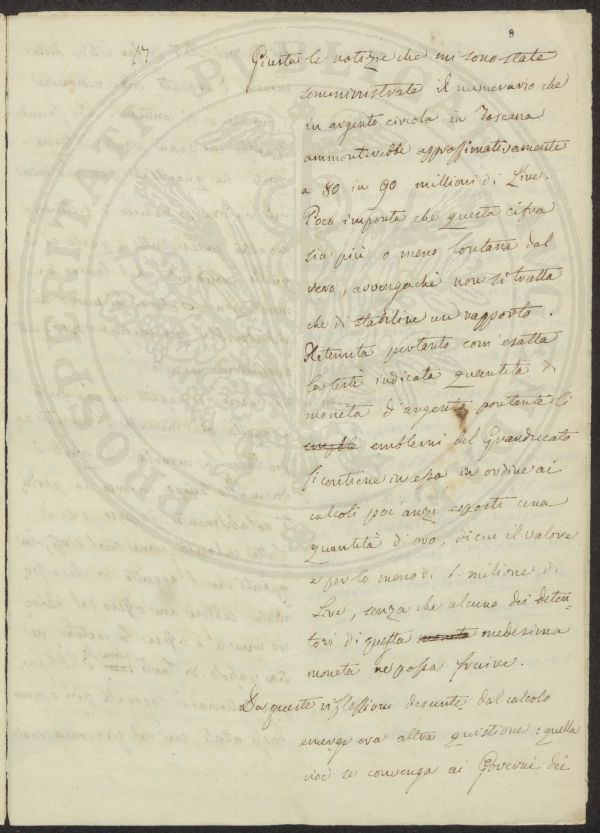 8
17
Giusta le notizie che mi sono state
somministrate il numerario che
in argento circola in Toscana
ammonterebbe approssimativamente
a 80 in 90 millioni di Lire.
Poco importa che questa cifra
sia più o meno lontana dal
vero, avvengachè non si tratta
che di stabilire un rapporto.
Ritenuta pertanto com'esatta
la testè indicata quantità di
moneta d'argento portante li
emble emblemi del Granducato
si contiene in essa in ordine ai
calcoli poc'anzi esposti una
quantità di oro, di cui il valore
e per lo meno di 1. milione di
Lire, senza che alcuno dei deten-
tori di questa moneta medesima
moneta ne possa fruire.
Da queste riflessioni desunte dal calcolo
emerge ora altra quistione: quella
cioè se convenga ai Governi dei